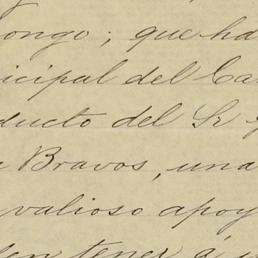 ongo; que ha
icipal del Ca
ducto del Sr
Bravos, una
valioso apoy
tener á